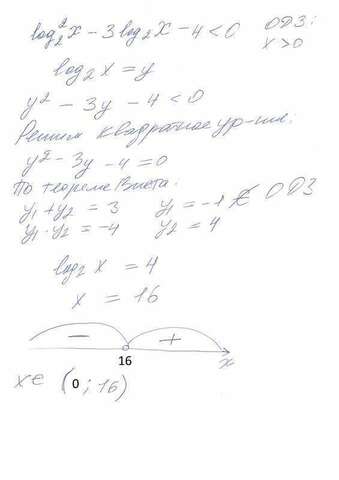 log₂²x - 3log₂x - 4 < 0 ОДЗ:
x > 0
log₂x = y
y² - 3y - 4 < 0
Решим квадратное ур-ние:
y² - 3y - 4 = 0
По теореме Виета:
y₁ + y₂ = 3 y₁ = -1 ∉ ОДЗ
y₁ · y₂ = -4 y₂ = 4
log₂ x = 4
x = 16
- +
16 x
x ∈ (0 ; 16)